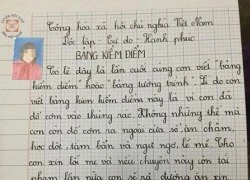 Cộng hòa xã hội chủ nghĩa Việt Nam
Độc lập - Tự do - Hạnh phúc
BẢNG KIỂM ĐIỂM
Có lẽ đây là lần cuối cùng con viết "bảng
kiểm điểm hoặc bảng tường trình". Lí do con
viết bảng kiểm điểm này là vì con đã
đổ cơm vào thùng rác. Không những thế mà
con còn đổ cơm ra ngoài cửa sổ ăn chậm,
học dốt, tắm bẩn và ngủ ngơ, lề mề. Cho
con xin lỗi mẹ và nếu chuyện này còn tái
phạm lần nữa con sẽ